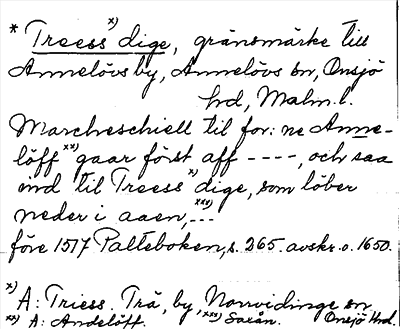 * Treess x) dige, gränsmärke till
Annelövs by, Annelövs sn, Onsjö
hd, Malm. l.
Marcheschiell til for: ne Anne-
löff xx) gaar först aff ----, och saa
ind til Treess x) dige, som löber
neder i aaen, xxx) ---
före 1517 Palteboken, s. 265. avskr. o. 1650.
x) A: Triess. Trä, by, Norrvidinge sn
xx) A: Andelöff. xxx) Saxån. Onsjö Hrd.